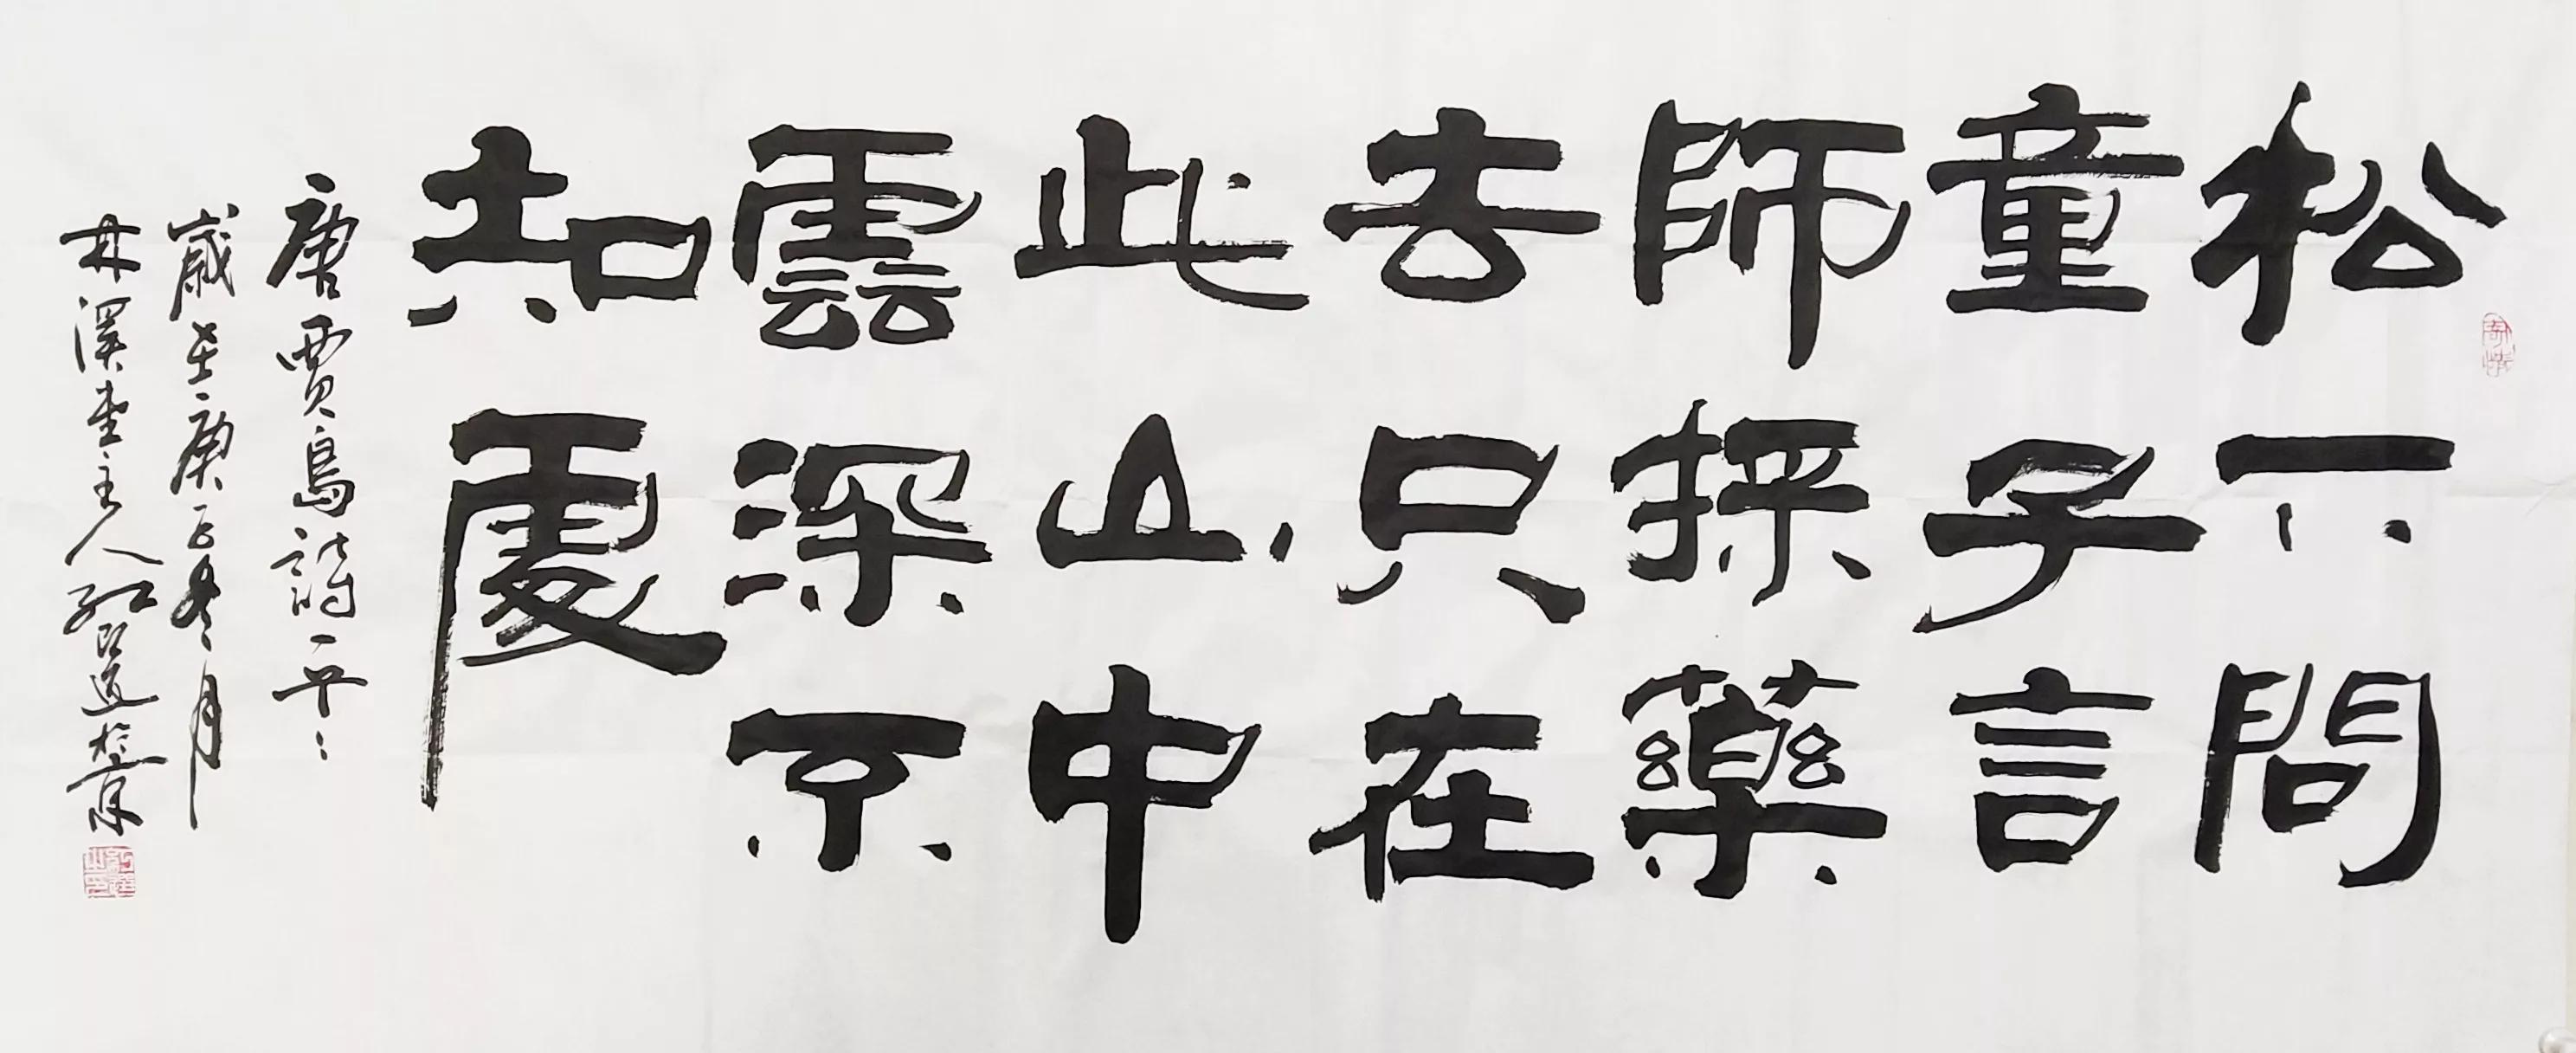 松下問
童子言
師採藥
去只在
此山中
雲深不
知處
唐賈島詩一首
歲在庚子冬月
林溪堂主人紅運於京